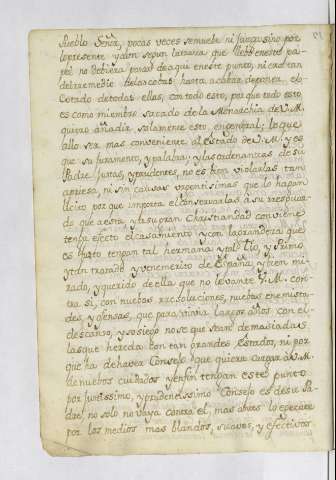 Pueblo Señor, pocas veces se muebe ni juzga sino por
lo presente y aun segun la razon que lleba en este pa-
pel no debiera parar de aqui en este punto, ni era tan
de las cosas hasta acabar de poner, el
de todas ellas, con todo esto, porque todo esto
es como miembro sacado de la Monarchia de V.M.
quiero añadir solamente esto, en general; lo que
allo ser mas conveniente al estado de V.M. y es
que su juramento, y palabra; y las ordenanzas de su
Padre Justas, y prudentes, no es bien violarlas tan
apriesa, ni sin causas urgentisimas que lo hagan
licito por que importa el conservarlas á su
do que á esta, y á su gran Christiandad conviene
tenga efecto el casamiento y con la promesa que
es justo tengan tal hermana y tal tio, y Primo
y tan tratado y benemerito de España, y bien mi-
rado, y querido de ella que no levante V.M. con-
tra si, con nuebas resoluciones, nuebas enemista-
des, y ofensas, que para vivir largos años con el
descanso, y sosiego no se que sean demasiadas
las que hereda con tan grandes estados, ni por
que ha de haver Consejo que quiera cargar á V.M.
de nuebos cuidados y en fin tengan este punto
por Justissimo, y prudentissimo Consejo es de su Pa-
dre no solo no vaya contra el, mas antes lo execute
por los medios mas blandos, suaves, y efectivos